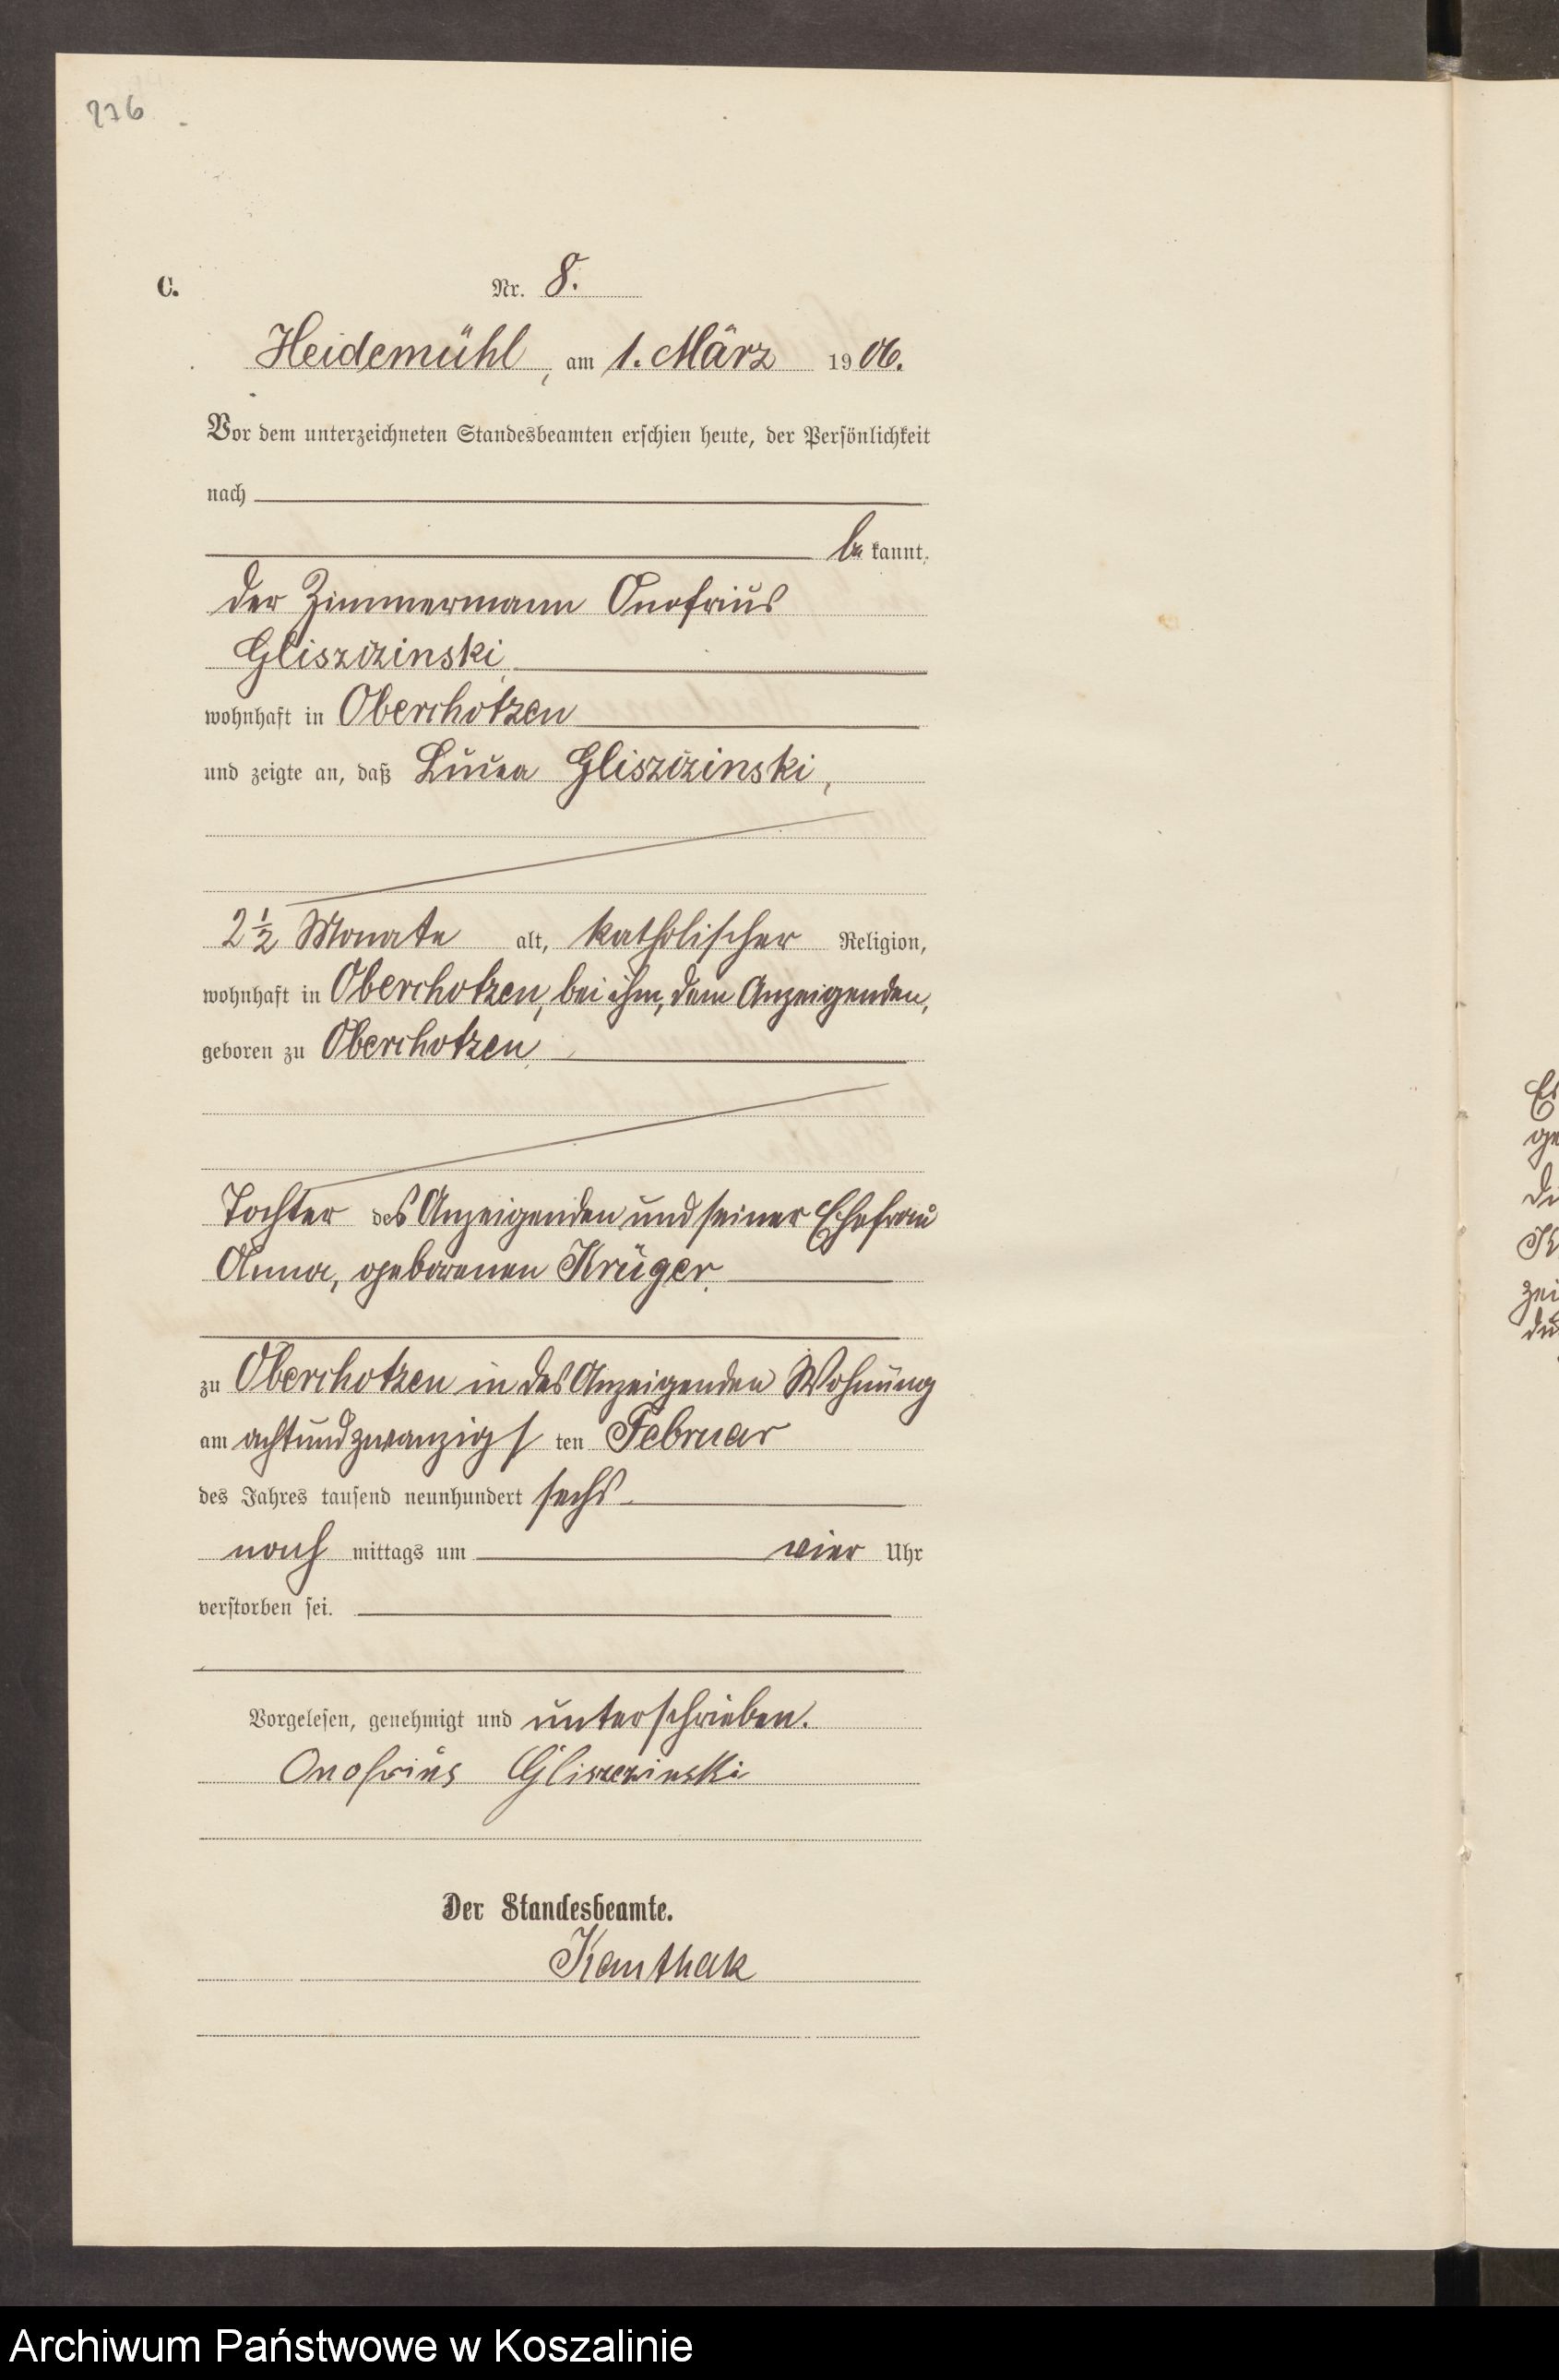 276
C.
Nr. 8.
Heidemühl, am 1. März 1906.
Vor dem unterzeichneten Standesbeamten erschien heute, der Persönlichkeit
nach
bekannt,
der Zimmermann Onofrius
Gliszizinski,
wohnhaft in Oberchotzen
und zeigte an, daß Gliszizinski,
2 1/2 Monate alt, katholischer Religion,
wohnhaft in Oberchotzen, bei ihm, dem Anzeigenden,
geboren zu Oberchotzen,
Tochter des Anzeigenden und seiner Ehefrau
Anna, geborenen Krüger,
zu Oberchotzen in des Anzeigenden Wohnung
am achtundzwanzigsten Februar
des Jahres tausend neunhundert sechs
nachmittags um vier Uhr
verstorben sei.
Vorgelesen, genehmigt und unterschrieben.
Onofrius Gliszczinski
Der Standesbeamte.
Kanthak
Archiwum Państwowe w Koszalinie